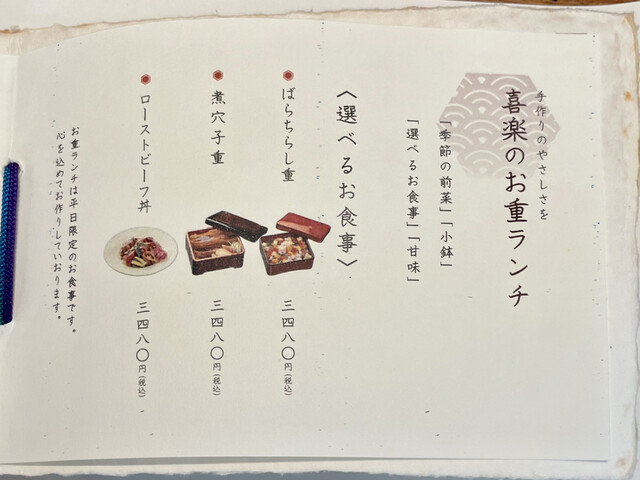 手作りのやさしさを
喜楽のお重ランチ
「季節の前菜」「小鉢」
「選べるお食事」「甘味」
〈選べるお食事〉
ばらちらし重 三四八〇円(税込)
煮穴子重 三四八〇円(税込)
ローストビーフ丼 三四八〇円(税込)
お重ランチは平日限定のお食事です。
心を込めてお作りしていおります。